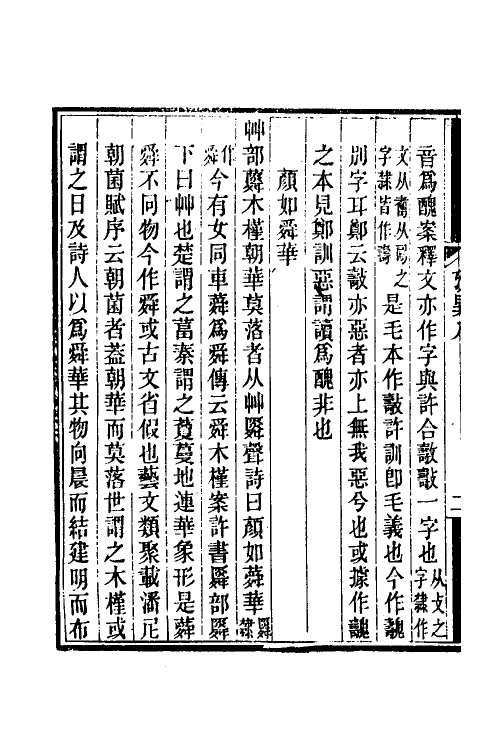 音爲醜案釋文亦作字與許合𣀈𣀈一字也从攴之字隸作
文从𠷎从殹之字隸皆作壽是毛本作𣀈許訓卽毛義也今作魗
別字耳鄭云𣀈亦惡者亦上無我惡兮也或據作魗
之本見鄭訓惡謂讀爲醜非也
顏如舜華
艸部蕣木槿朝華莫落者从艸䑞聲詩曰顏如蕣華䑞隸
作舜今有女同車蕣爲舜傳云舜木槿案許書䑞部䑞
下曰艸也楚謂之葍秦謂之藑蔓地連華象形是蕣
舜不同物今作舜或古文省假也藝文類聚載潘尼
朝菌賦序云朝菌者葢朝華而莫落世謂之木槿或
謂之日及詩人以爲舜華其物向晨而結建明而布
二